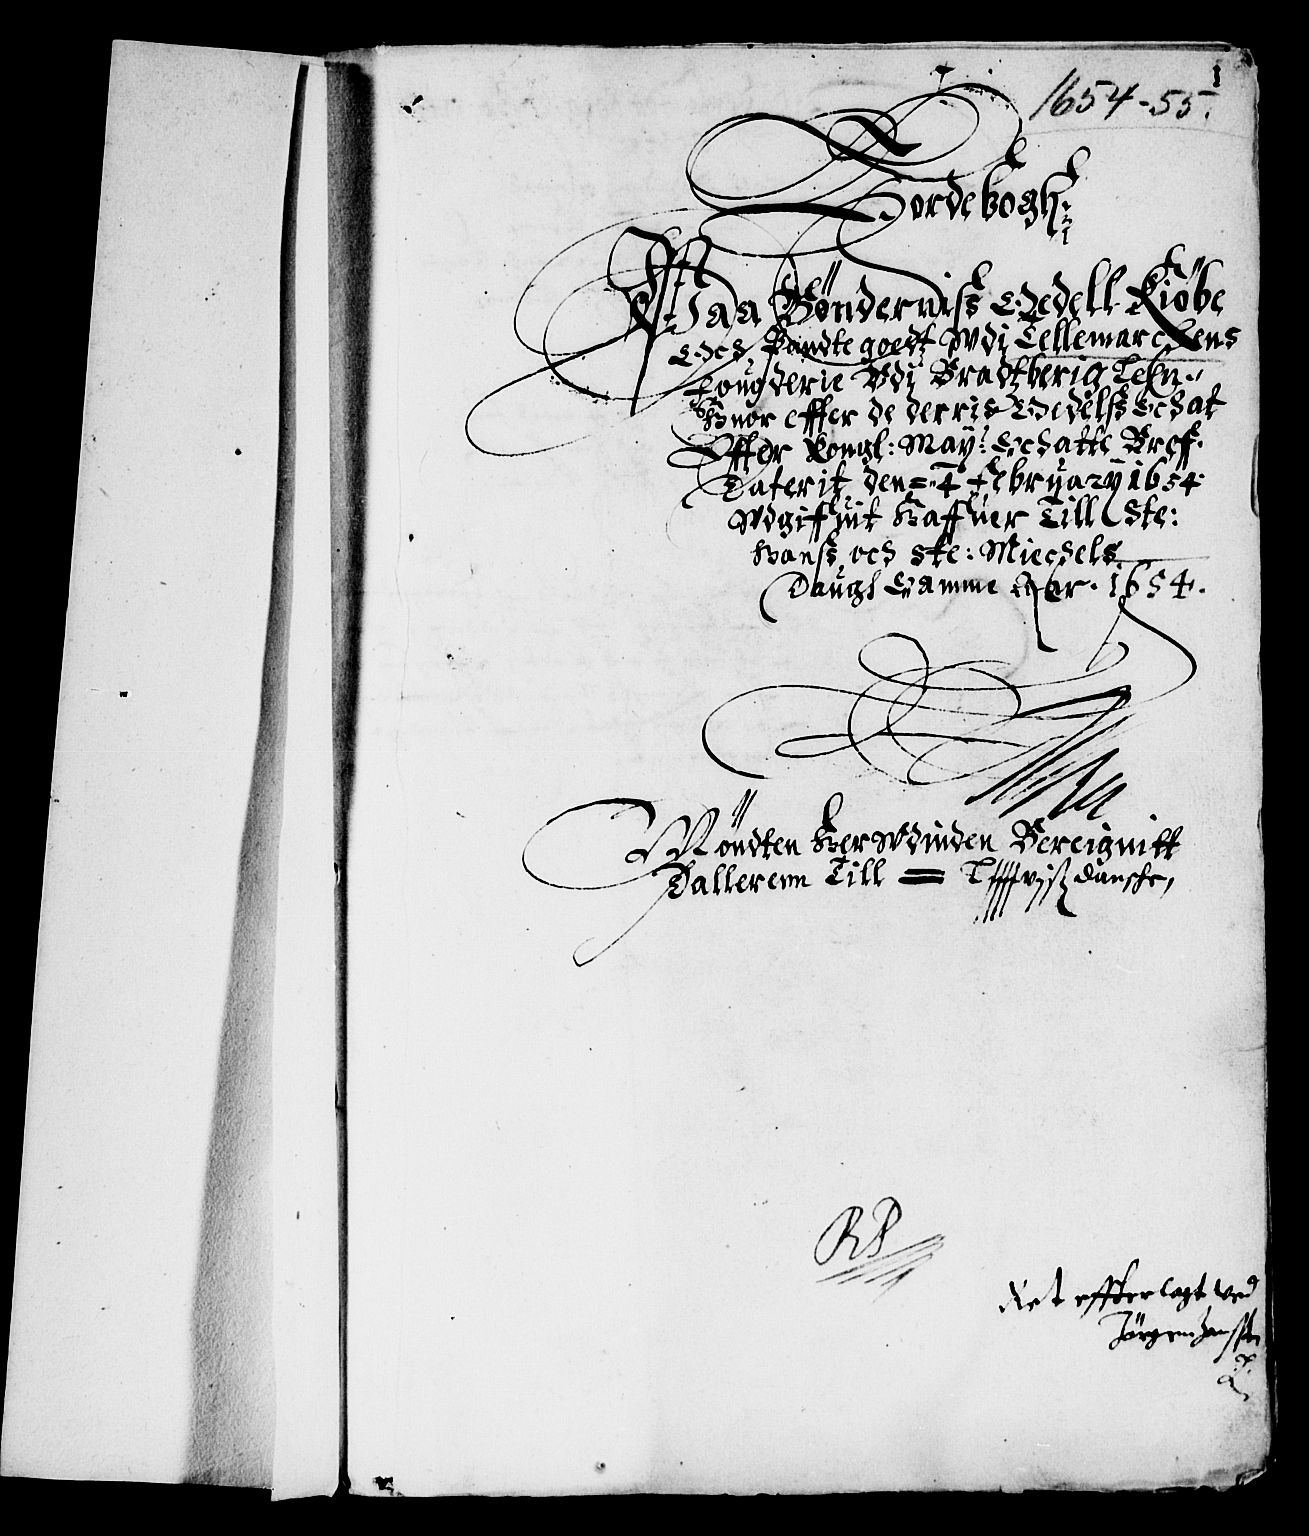 1
1654-55.
Jordebogh
Paa Bønderniss Odell Kiøbe
Och Pandte goedtz Wdj Tellemarckens
fougderie Vdj Bradtberig Lehn
Huor effter de derris Odelss Schat
Effter Kongl: May: Schatte Bref
Daterit den 4 februarÿ 1654
Wdgiffuit Haffuer Till Ste:
Hanss och Ste: Michels
Daugh Samme Aar 1654.
Møndten her Wdinden Bereignitt
Dallerenn Till = danske,
RP
Ret effter lagt ved
Jørgen Janssen